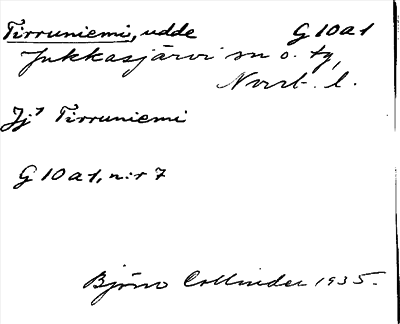 Tirruniemi, udde G 10 a 1
Jukkasjärvi sn o. tg,
Norrb. l.
Jj⁷ Tirruniemi
G 10 a 1, n:r 7
Björn Collinder 1935.